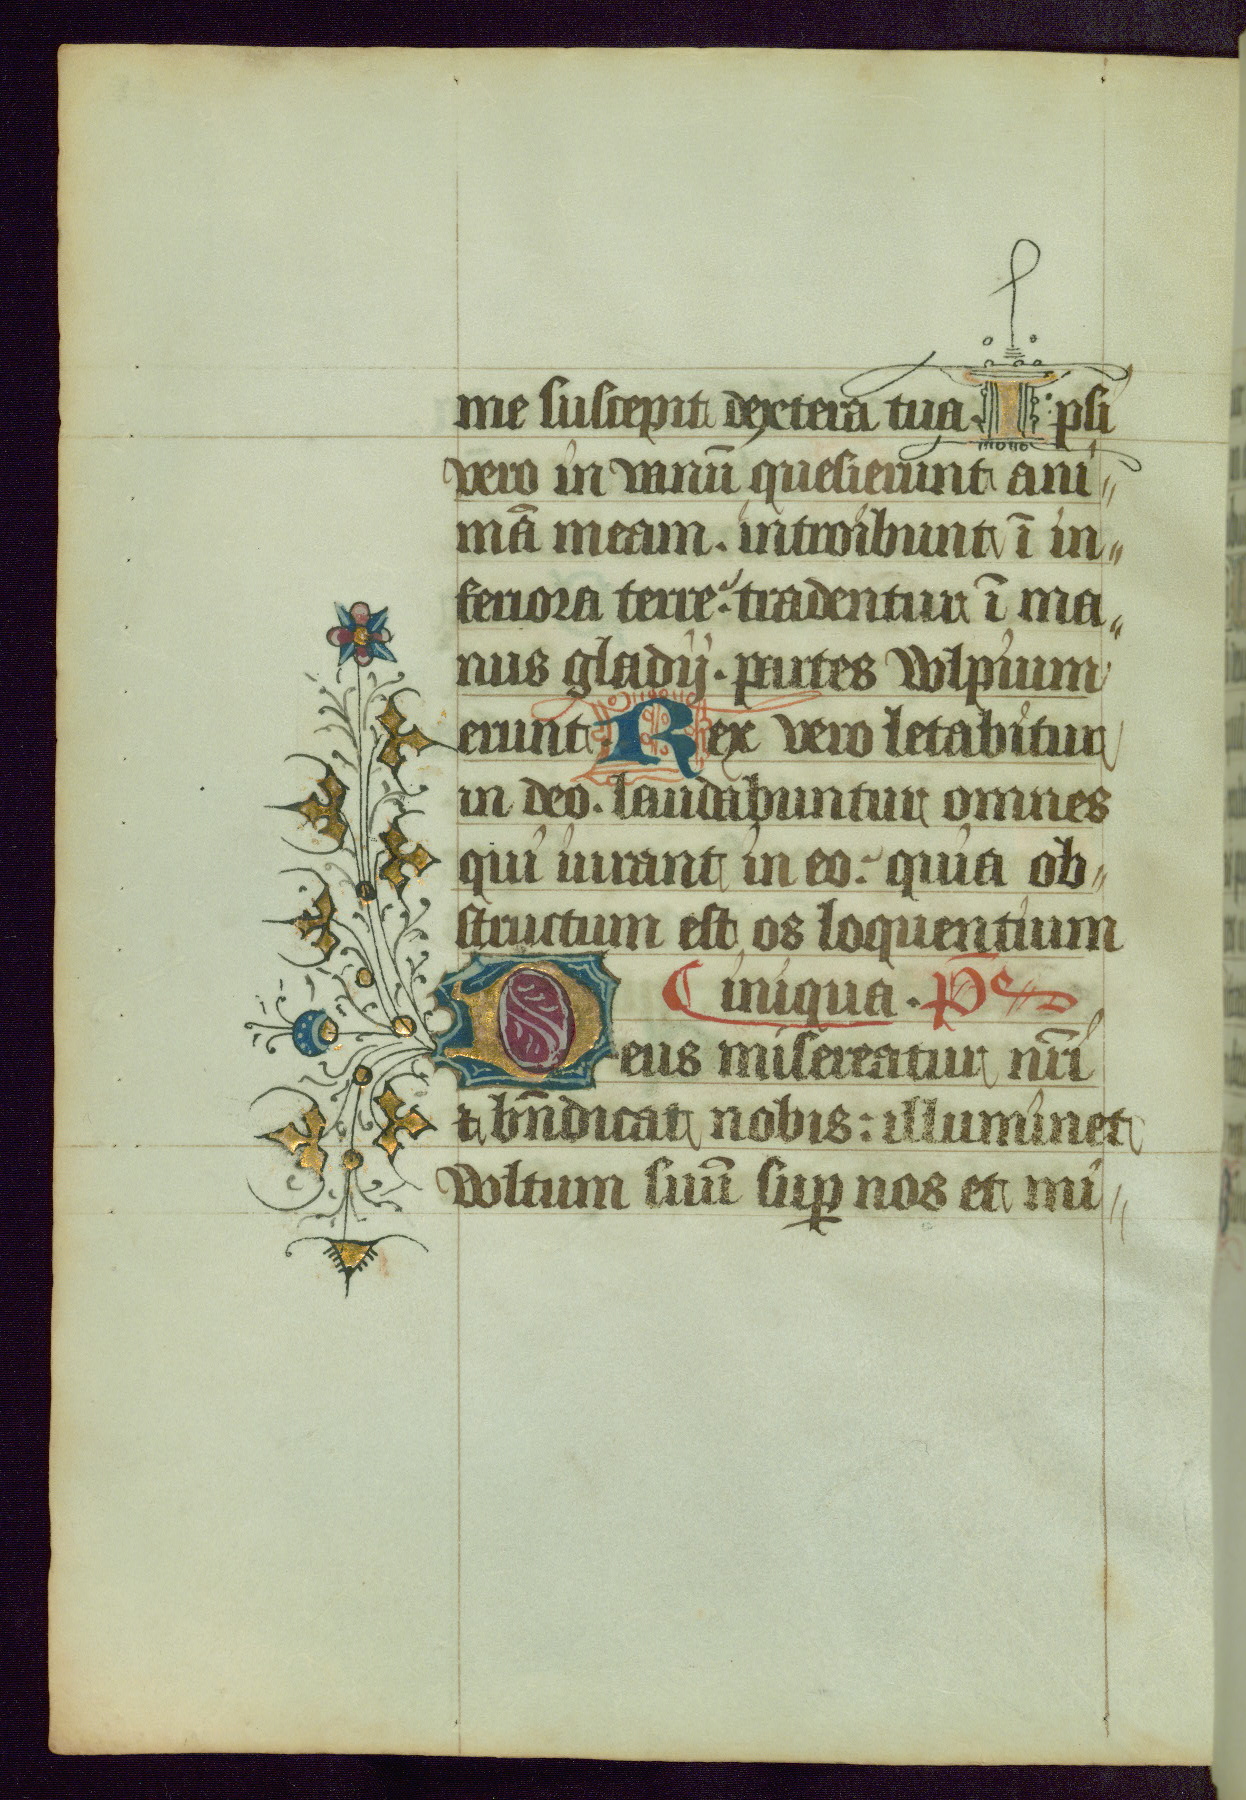 me suscepit dextera tua. Ipsi
vero in vanū quesierunt ani〃
mā meam. introibunt ī in〃
feriora terre: tradentur ī ma〃
nus gladij. partes vulpium
erunt. Rex vero letabitur
in deo. laudabuntur omnes
qui iurant in eo: quia ob〃
structum est os loquentium
iniqua. p̄s
Deus misereatur nr̄i
⁊ bn̄dicat nobis: illuminet
vultum suū sup̱ nos et mi〃